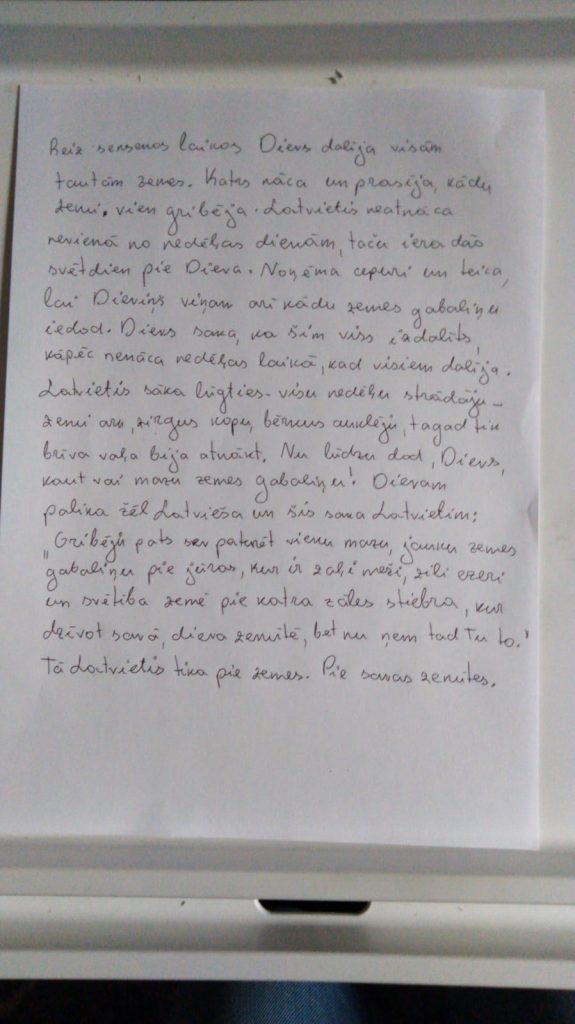 Reiz sensenos laikos Dievs dalīja visām
tautām zemes. Katrs nāca un prasīja, kādu
zemi vien gribēja. Latvietis neatnāca
nevienā no nedēļas dienām, taču ieradās
svētdien pie Dieva. Noņēma cepuri un teica,
lai Dieviņš viņam arī kādu zemes gabaliņu
iedod. Dievs saka, ka šim viss izdalīts,
kāpēc nenāca nedēļas laikā, kad visiem dalīja.
Latvietis sāka lūgties - visu nedēļu strādāju -
zemi aru, zirgus kopu, bērnus auklēju, tagad tik
brīva vaļa bija atnākt. Nu lūdzu dod, Dievs,
kaut vai mazu zemes gabaliņu! Dievam
palika žēl Latvieša un šis saka Latvietim:
"Gribēju pats sev paturēt vienu mazu, jauku zemes
gabaliņu pie jūras, kur ir zaļi meži, zili ezeri
un svētība zemē pie katra zāles stiebra, kur
dzīvot savā, dieva zemītē, bet nu ņem tad Tu to."
Tā Latvietis tika pie zemes. Pie savas zemītes.